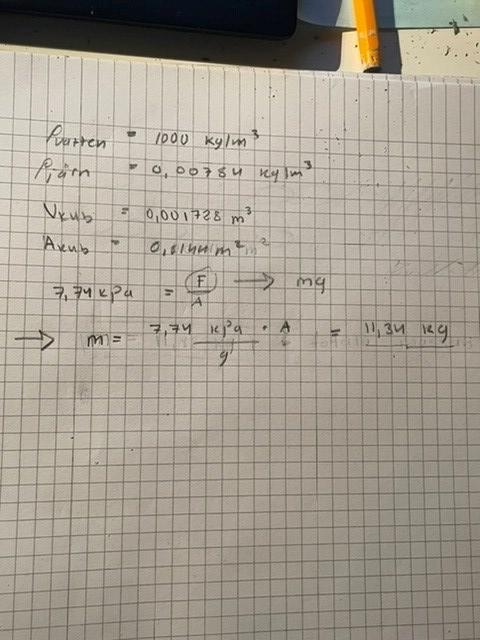 ρvatten = 1000 kg/m³
ρjärn = 0,00784 kg/m³
Vkub = 0,001728 m³
Akub = 0,0144 m²
7,74 kPa = F/A → mg
→ m = 7,74 kPa · A / g = 11,34 kg